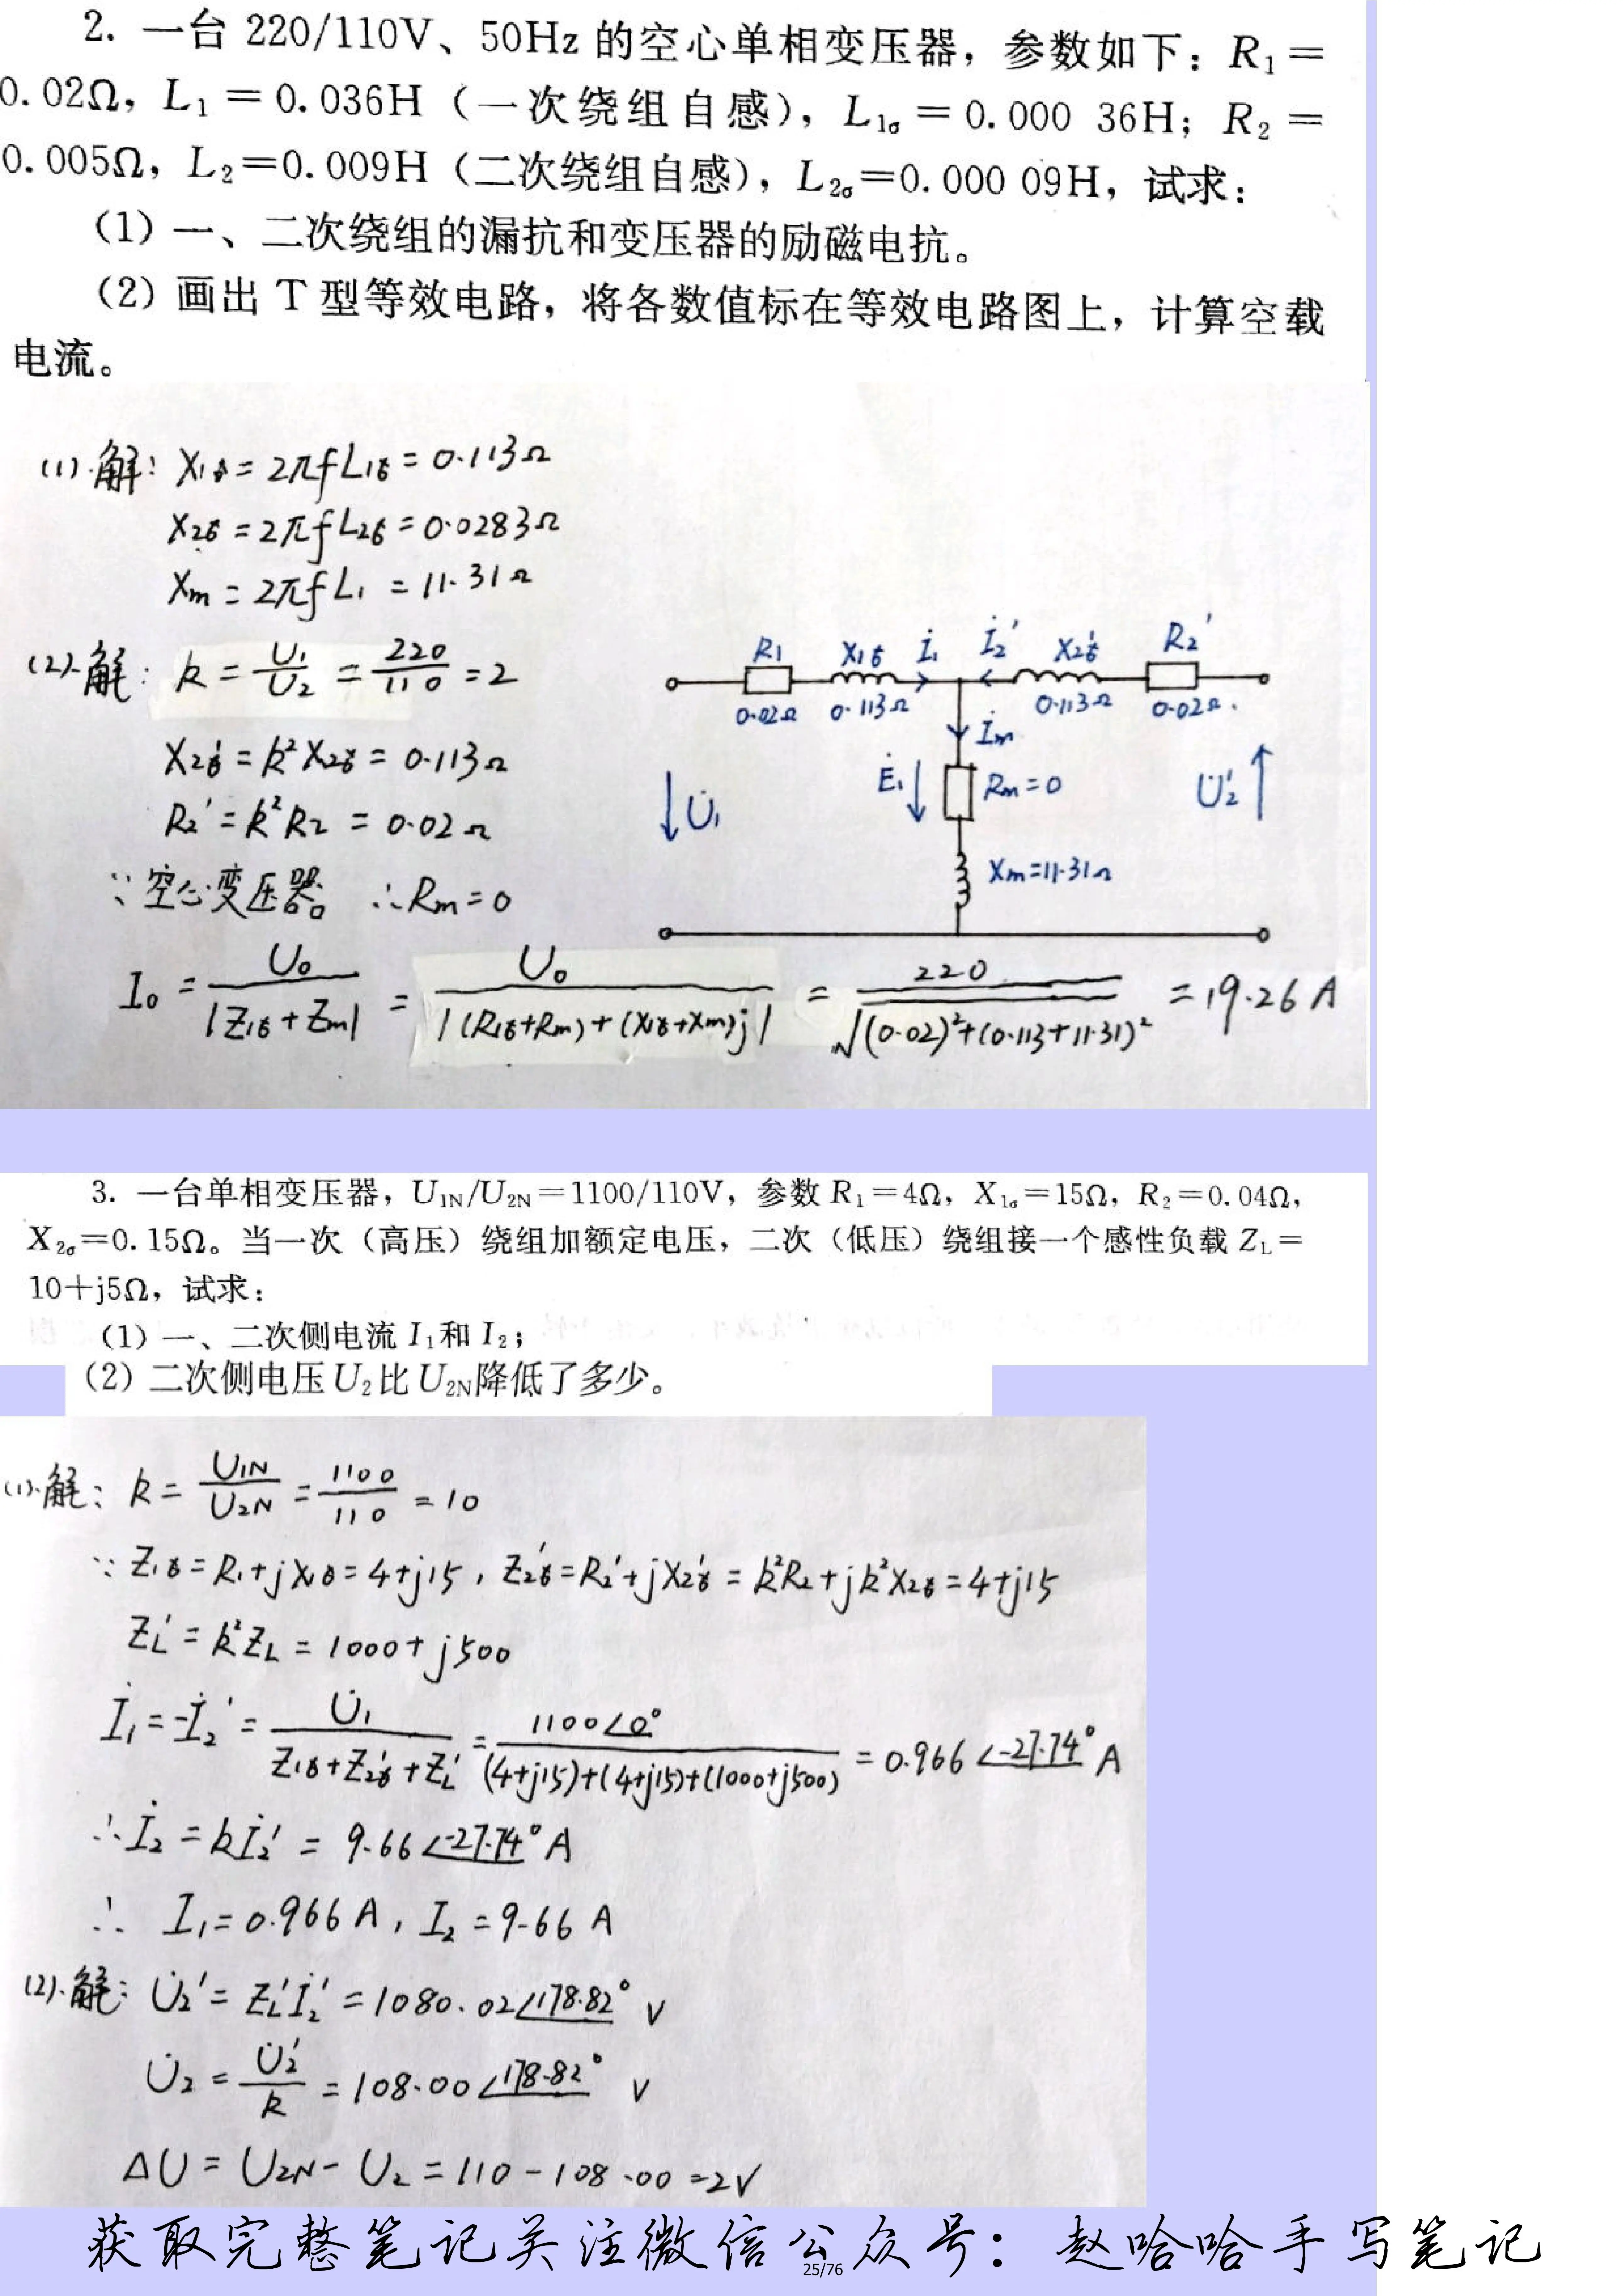 2. 一台 220/110V、50Hz 的空心单相变压器，参数如下：R₁＝
0.02Ω，L₁＝0.036H（一次绕组自感），L₁σ＝0.000 36H；R₂＝
0.005Ω，L₂＝0.009H（二次绕组自感），L₂σ＝0.000 09H，试求：
（1）一、二次绕组的漏抗和变压器的励磁电抗。
（2）画出 T 型等效电路，将各数值标在等效电路图上，计算空载
电流。
(1).解: X₁σ = 2πfL₁σ = 0.113Ω
X₂σ = 2πfL₂σ = 0.0283Ω
Xm = 2πfL₁ = 11.31Ω
(2).解: k = U₁/U₂ = 220/110 = 2
X₂σ' = k²X₂σ = 0.113Ω
R₂' = k²R₂ = 0.02Ω
∵空心变压器 ∴Rm=0
R₁ X₁σ İ₁ İ₂' X₂σ' R₂'
0.02Ω 0.113Ω 0.113Ω 0.02Ω.
İm
Ė₁ Rm=0
U̇₁ U̇₂'
Xm=11.31Ω
I₀ = U₀/|Z₁σ+Zm| = U₀/|(R₁σ+Rm)+(X₁σ+Xm)j| = 220/√((0.02)²+(0.113+11.31)²) = 19.26A
3. 一台单相变压器，U₁N/U₂N＝1100/110V，参数 R₁＝4Ω，X₁σ＝15Ω，R₂＝0.04Ω，
X₂σ＝0.15Ω。当一次（高压）绕组加额定电压，二次（低压）绕组接一个感性负载 ZL＝
10＋j5Ω，试求：
（1）一、二次侧电流 I₁和 I₂；
（2）二次侧电压U₂比U₂N降低了多少。
(1).解: k = U₁N/U₂N = 1100/110 = 10
∵ Z₁σ=R₁+jX₁σ=4+j15, Z₂σ'=R₂'+jX₂σ'=k²R₂+jk²X₂σ=4+j15
ZL' = k²ZL = 1000+j500
İ₁=-İ₂' = U̇₁/(Z₁σ+Z₂σ'+ZL') = 1100∠0°/((4+j15)+(4+j15)+(1000+j500)) = 0.966∠-27.74°A
∴İ₂ = kİ₂' = 9.66∠-27.74°A
∴ I₁=0.966A, I₂=9.66A
(2).解: U̇₂' = ZL'İ₂' = 1080.02∠178.82° V
U̇₂ = U̇₂'/k = 108.00∠178.82° V
ΔU = U₂N-U₂ = 110-108.00=2V
获取完整笔记关注微信公众号：赵哈哈手写笔记
25/76